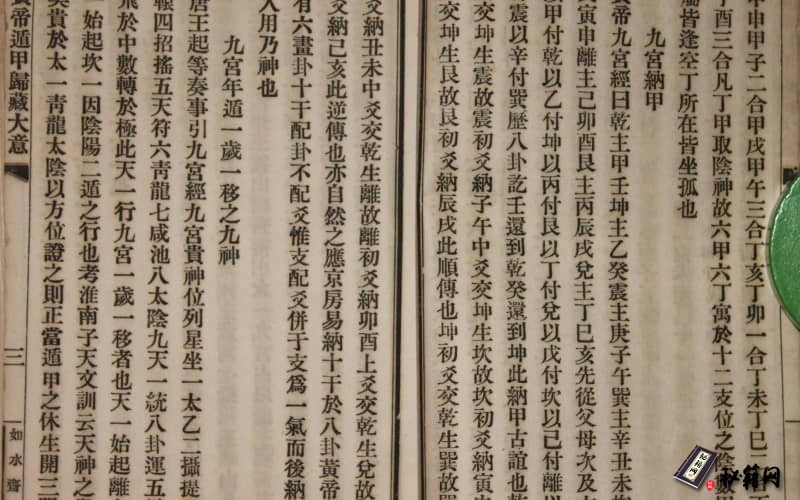 申甲子二合甲戌甲午三合丁亥丁卯一合丁未丁巳二
丁酉三合凡丁甲取陰神故六甲六丁寓於十二支位之陰數
皆逢空丁所在皆坐孤也
九宮納甲
帝九宮經曰乾主甲壬坤主乙癸震主庚子午巽主辛丑未
寅申離主己卯酉艮主丙辰戌兌主丁巳亥先從父母次及
以甲付乾以乙付坤以丙付艮以丁付兌以戊付坎以己付離
震以辛付巽歷八卦訖壬還到乾癸還到坤此納甲古誼也乾
爻交坤生震故震初爻納子午中爻交坤生坎故坎初爻納寅申
爻交坤生艮故艮初爻納辰戌此順傳也坤初爻交乾生巽故
爻納丑未中爻交乾生離故離初爻納卯酉上爻交乾生兌故
爻納己亥此逆傳也亦自然之應京房易納十干於八卦黃帝
有六畫卦十干配卦不配爻惟支配爻併于支爲一氣而後納
入用乃神也
九宮年遁一歲一移之九神
唐王起等奏事引九宮經九宮貴神位列星坐一太乙二攝提
轅四招搖五天符六青龍七咸池八太陰九天一統八卦運五
飛於中數轉於極此天一行九宮一歲一移者也天一始起離
始起坎一因陰陽二遁之行也考淮南子天文訓云天神之
貴於太一青龍太陰以方位證之則正當遁甲之休生開三
帝遁甲歸藏大意
三
如水齋
秘籍网